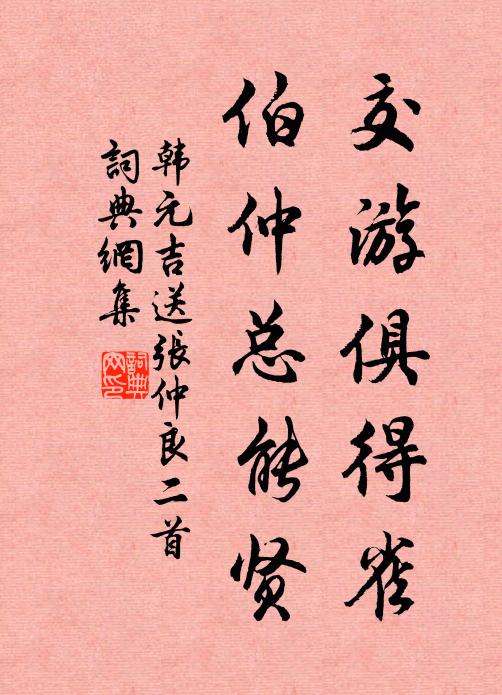 交游俱得
伯仲总能贤
韩元吉送張仲良二首
詞典網集
詞典网印